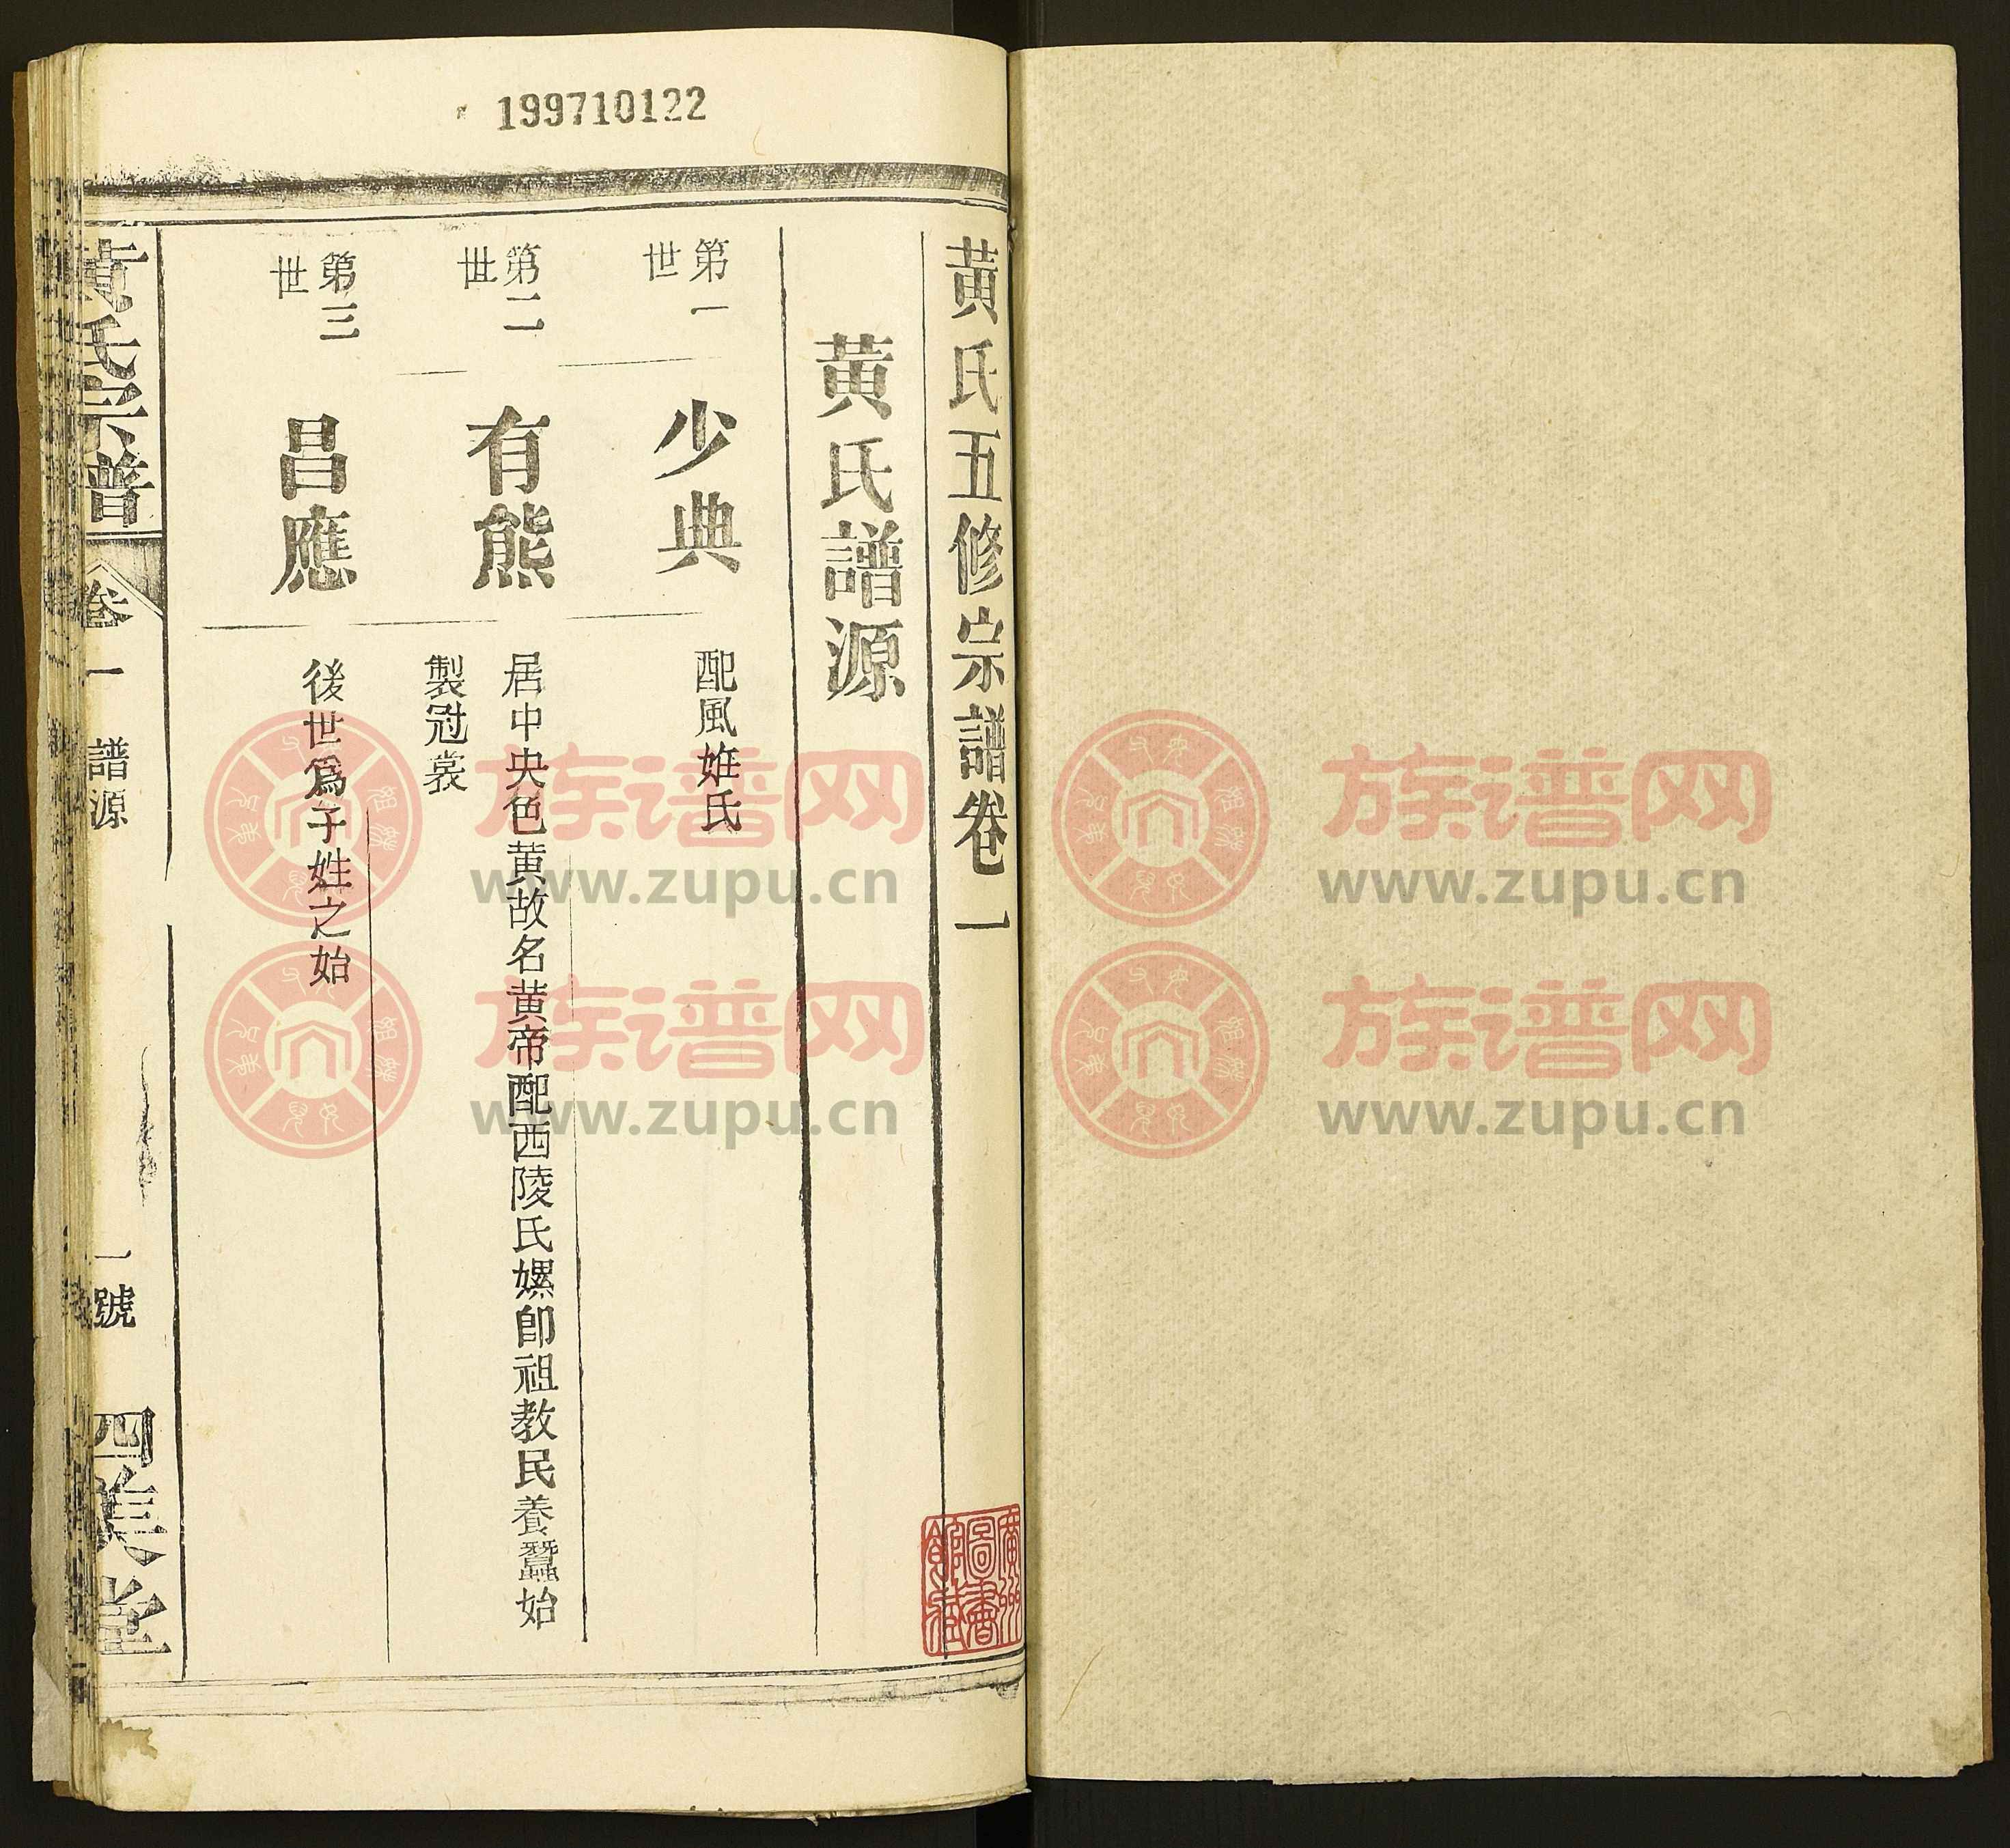 199710122
黄氏五修宗譜卷一
黄氏譜源
第一
世
少典
配風姓氏
第二
世
有熊
居中央色黄故名黄帝配西陵氏嫘即祖教民養蠶始
製冠裳
第三
世
昌應
後世爲子姓之始
黄氏宗譜
卷一
譜源
一號
四美堂
廣州
圖書
館藏
族谱网
www.zupu.cn
族谱网
www.zupu.cn
族谱网
www.zupu.cn
族谱网
www.zupu.cn